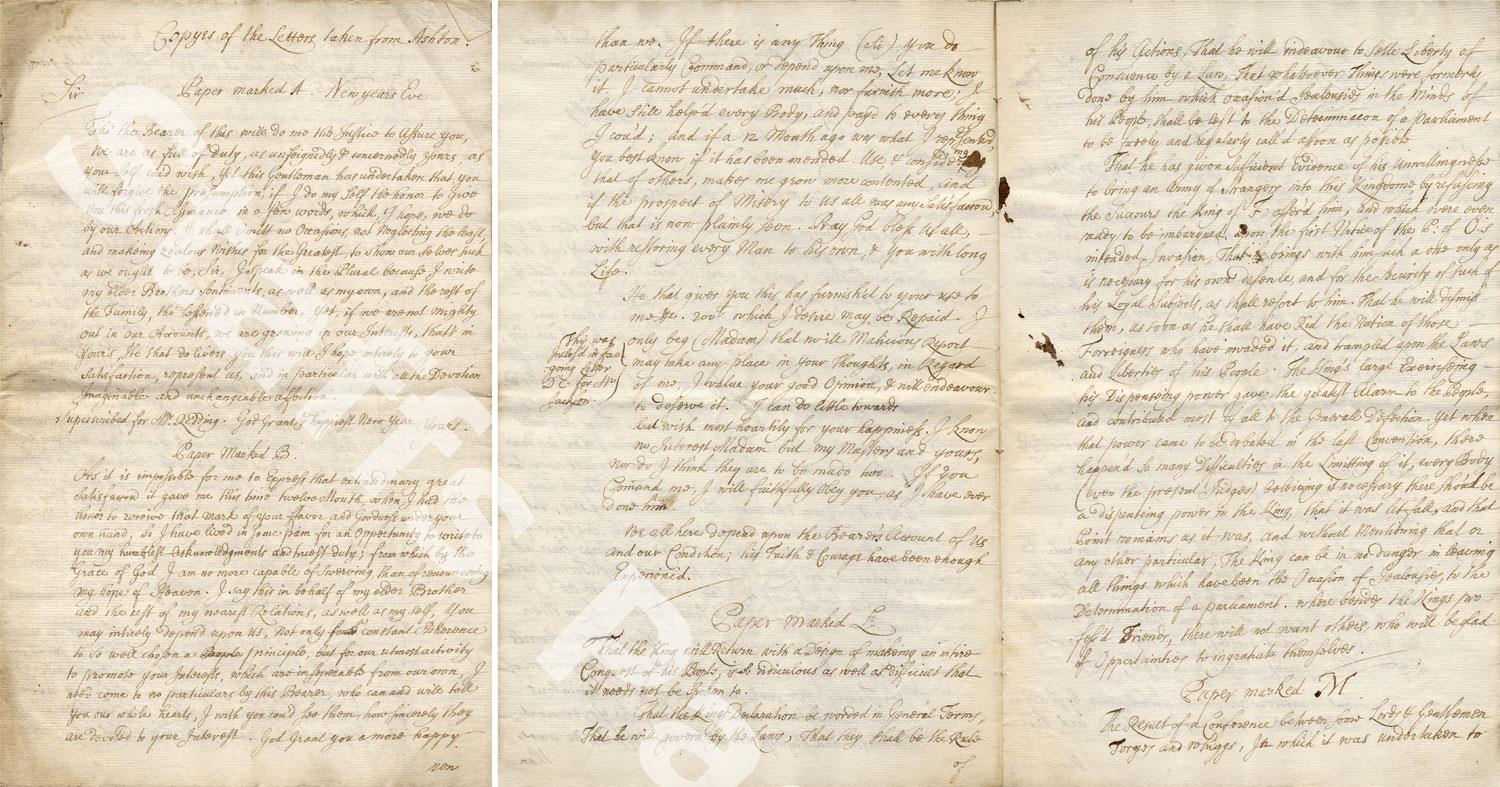 Copyes of the Letters taken from Ashton.
Sir Paper marked A. New years Eve
Tho the Bearer of this will do me the Justice to Assure you,
We are as full of Duty, as unfeignedly & concernedly yours, as
your self could wish, Yet this Gentleman has undertaken that you
will forgive the presumption, if I do my Self the honor to give
You this fresh Assurance in a few words, which, I hope, we do
by our Actions. I shall Omitt no Occasions, not Neglecting the least,
and makeing zealous Wishes for the Greatest, to show our selves such
as we ought to be, Sir, I speak in the Plural because I write
my elder Brothers Sentiments, as well as my own, and the rest of
the Family, tho lessen'd in Number, Yet, if we are not mighty
out in our Accounts, we are growing in our Interest, that's in
Yours, He that delivers you this will I hope intirely to your
Satisfaction, represent us, and in particular with all the Devotion
Imaginable and unchangeable affection.
Superscribed for Mr. Redding. God Grant ye happiest New Year Yours.
Paper Marked B.
As it is impossible for me to Express that extraordinary great
Satisfaccon it gave me this time twelve Month, when I had the
honor to receive that mark of your Favor and Goodness under your
own hand, so I have lived in some pain for an Opportunity to write to
you my humblest Acknowledgments and truest duty; from which by the
Grace of God I am no more capable of Swerving than of renouncing
my hope of Heaven. I say this in behalf of my elder Brother
and the rest of my nearest Relations, as well as my self, You
may intirely depend upon us, Not only for a constant Adherence
to so well chosen a principle, but for our utmost activity
to promote your Interests, which are inseparable from our own, I
need come to no particulars by this Bearer, who can and will tell
You our whole hearts, I wish you could see them, how sincerely they
are devoted to your Interest. God Grant you a more happy
than we. If there is any Thing (Sir) You do
particularly Command, or depend upon me, Let me know
it. I cannot undertake much, nor furnish more; I
have Still help'd every Body, and pay'd to every thing
I cou'd; and if a 12 Month ago was what I represented,
You best know if it has been mended. Use & considering
that of others, makes me grow more contented, and
if the prospect of Misery to us all was any Satisfaccon,
but that is non plainly Seen. Pray God bless us all,
with restoring every Man to his own, & You with long
Life.
He that gives you this has furnish'd to yours use to
me &c. 200l which I desire may be Repaid. I
only beg (Madam) that no ill Malicious Report
may take any place in your Thoughts, in Regard
of me, I value your good Opinion, & will endeavour
to deserve it. I can do little towards
but wish most heartily for your happiness. I know
no Interest Madam but my Masters and yours,
nor do I think they are to be made two. If you
Comand me, I will faithfully Obey you, as I have ever
done him.
This was
going Letter
&c. for Mrs
Jackson
We all here depend upon the Bearers Account of Us
and our Condition; his Faith & Courage have been enough
Experienc'd.
Paper Marked L
That the King will Return with a Design of making an intire
Conquest of his People, is so ridiculous as well as difficult that
it needs not be Spoken to.
That the Kings Declaration be worded in General Terms,
That he will govern by the Laws, That they shall be the Rule
of
of his Actions, That he will endeavour to Settle Liberty of
Conscience by a Law, That whatsoever Things were formerly
done by him which occasion'd Jealousies in the Minds of
his People, shall be left to the Determinacon of a Parliament
to be freely and regularly call'd assoon as possible
That he has given Sufficient Evidence of his Unwillingness
to bring an Army of Strangers into this Kingdome by refusing
the Succours the King of F: offer'd him, and which were even
ready to be imbarqued, upon the first Notice of the P: of O's
intended Invasion, That he brings with him such a one only as
is necessary for his own defence, and for the Security of such of
his Loyal Subjects, as shall resort to him. That he will dismiss
them, as soon as he shall have Rid the Nation of those
Forreigners who have invaded it, and trampled upon the Laws
and liberties of his People. The King's large Exercising
his Dispensing power gave the greatest Alarm to the People,
and contributed most of all to the Generall Defection. Yet when
that power came to be debated in the last Convention, there
happen'd So many Difficulties in the Limitting of it, every Body
(even the present Judges) beleiving it necessary there should be
a dispensing power in the King, that it was let fall, and that
point remains as it was, and without Mentioning that or
any other particular, The King can be in no danger in leaving
all things which have been the Ocasion of Jealousies, to the
Determination of a parliament. where besides the Kings pro
fess'd Friends, there will not want others, who will be glad
of Oppertunities to ingratiate themselves.
Paper marked M
The Result of a Conference between some Lords & Gentlemen
Toryes and Whiggs, In which it was undertaken to